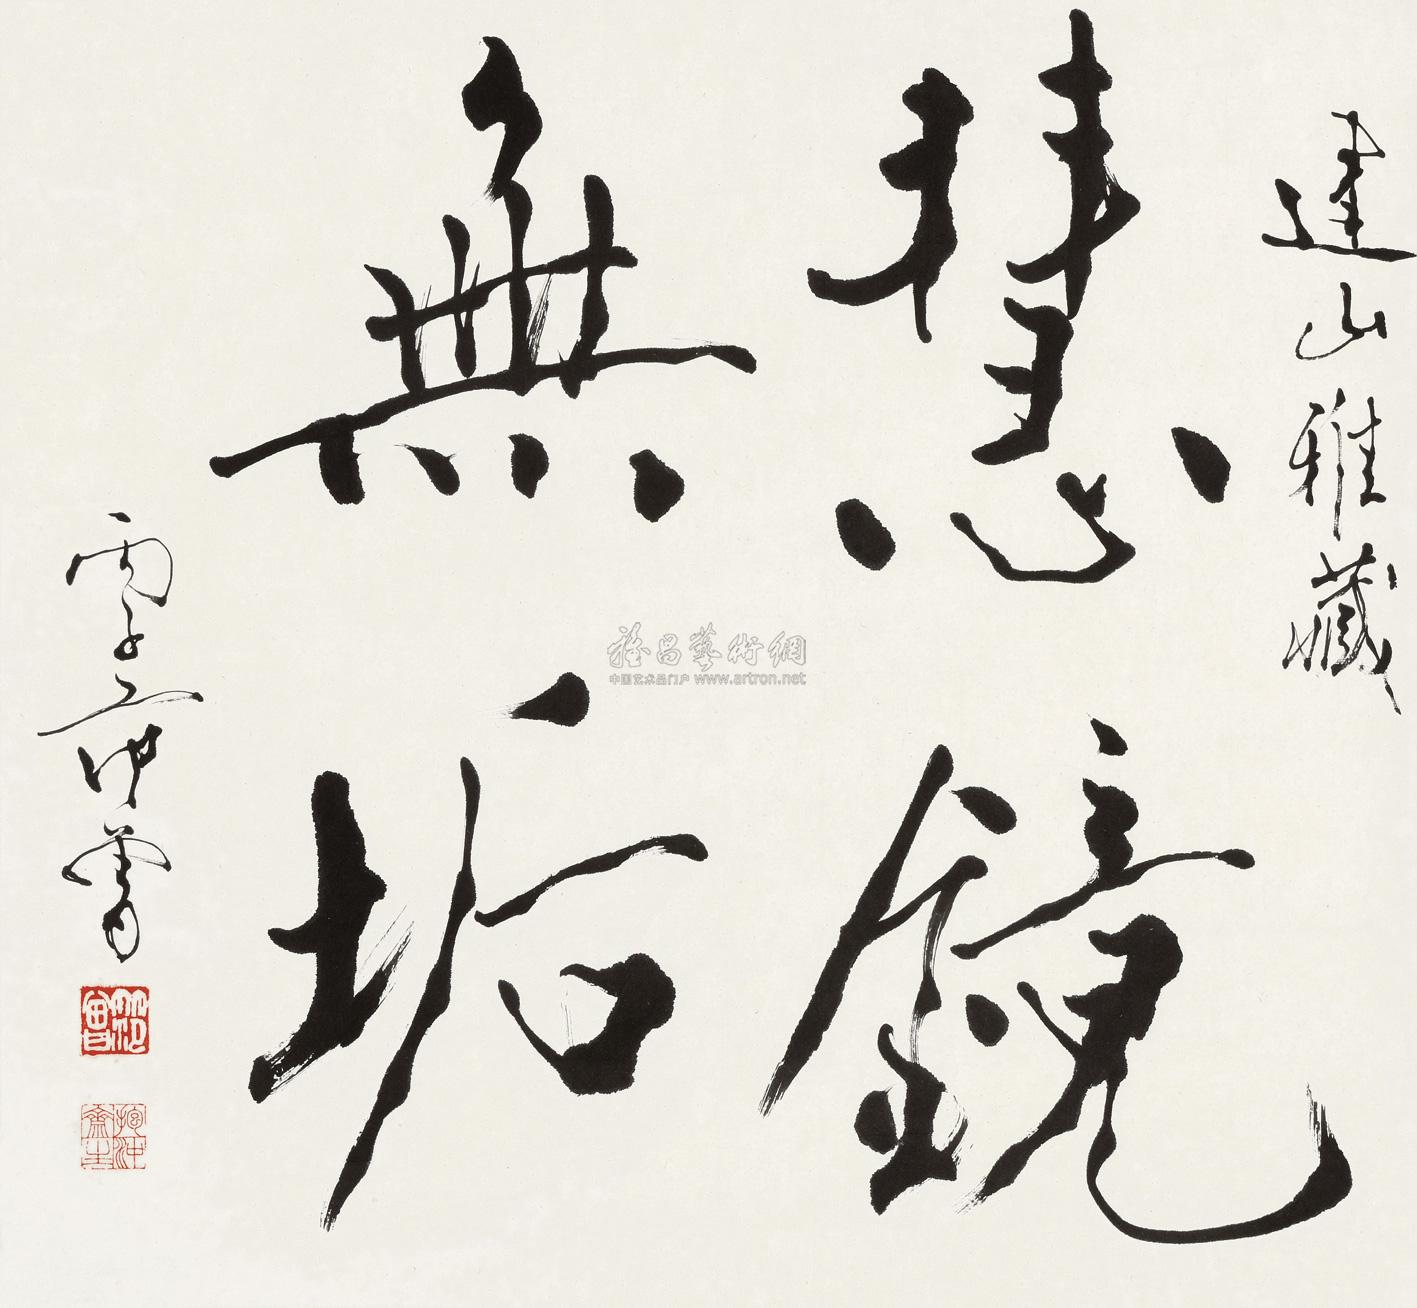 建山雅藏
慧鏡
無垢
丙子
曾
范曾
抱沖齋主
雅昌藝術網
中国艺术品门户 www.artron.net